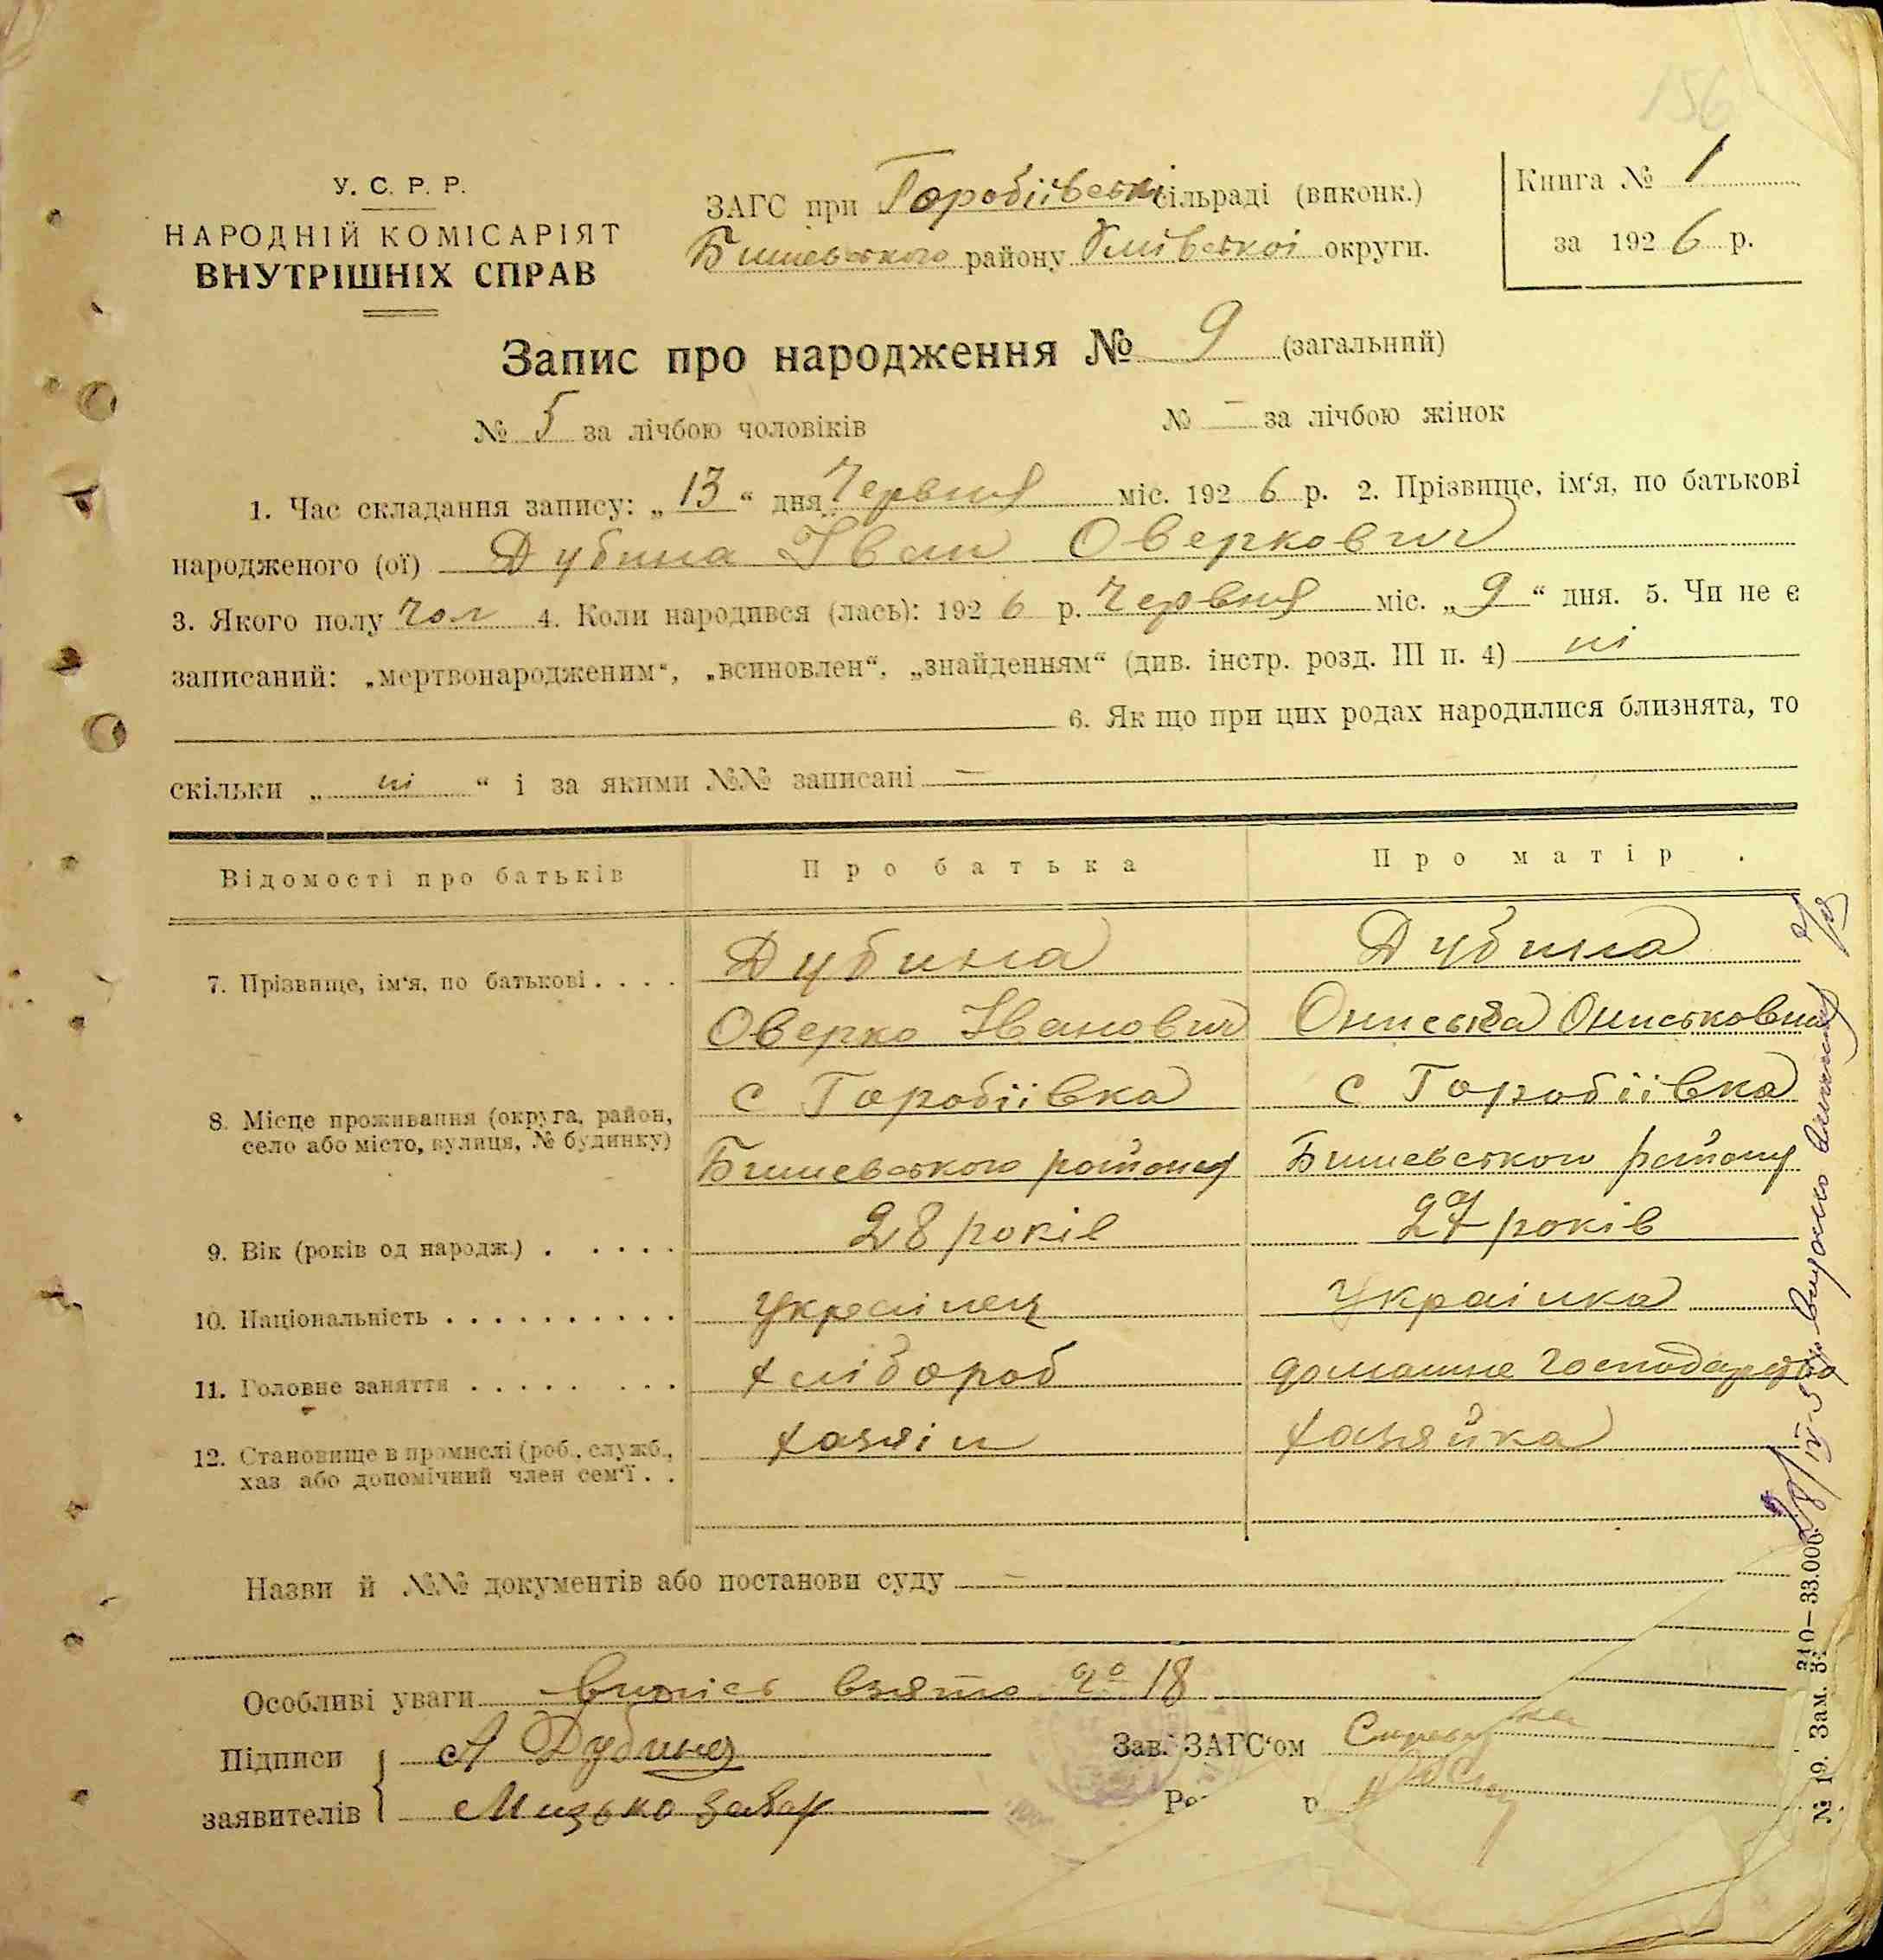 156
У. С. Р. Р.
НАРОДНІЙ КОМІСАРІЯТ
ВНУТРІШНІХ СПРАВ
ЗАГС при Горобіївські сільраді (виконк.)
Бишевського району Київської округи.
Книга № 1
за 1926 р.
Запис про народження № 9 (загальний)
№ 5 за лічбою чоловіків № – за лічбою жінок
1. Час складання запису: „13“ дня Червня міс. 1926 р. 2. Прізвище, ім‘я, по батькові
народженого (ої) Дубина Іван Оверкович
3. Якого полу чол 4. Коли народився (лась): 1926 р. Червня міс. „9“ дня. 5. Чи не є
записаний: „мертвонародженим“, „всиновлен“, „знайденням“ (див. інстр. розд. III п. 4) ні
6. Як що при цих родах народилися близнята, то
скільки „ ні “ і за якими №№ записані –
Відомості про батьків Про батька Про матір
7. Прізвище, ім‘я, по батькові . . . . Дубина Дубина
Оверко Іванович Ониська Ониськовна
8. Місце проживання (округа, район, с Горобіївка с Горобіївка
село або місто, вулиця, № будинку) Бишевського району Бишевського району
9. Вік (років од народж.) . . . . . 28 років 27 років
10. Національність . . . . . . . . . . українец Українка
11. Головне заняття . . . . . . . . хлібороб домашнє господарство
12. Становище в промислі (роб., служб., хазяін хазяйка
хаз. або допомічний член сем‘ї . .
Назви й №№ документів або постанови суду –
Особливі уваги Випісь взято 18
Підписи А Дубина Зав. ЗАГС‘ом
заявителів Мизько Захар
№ 19. Зам. 3 210–33.000